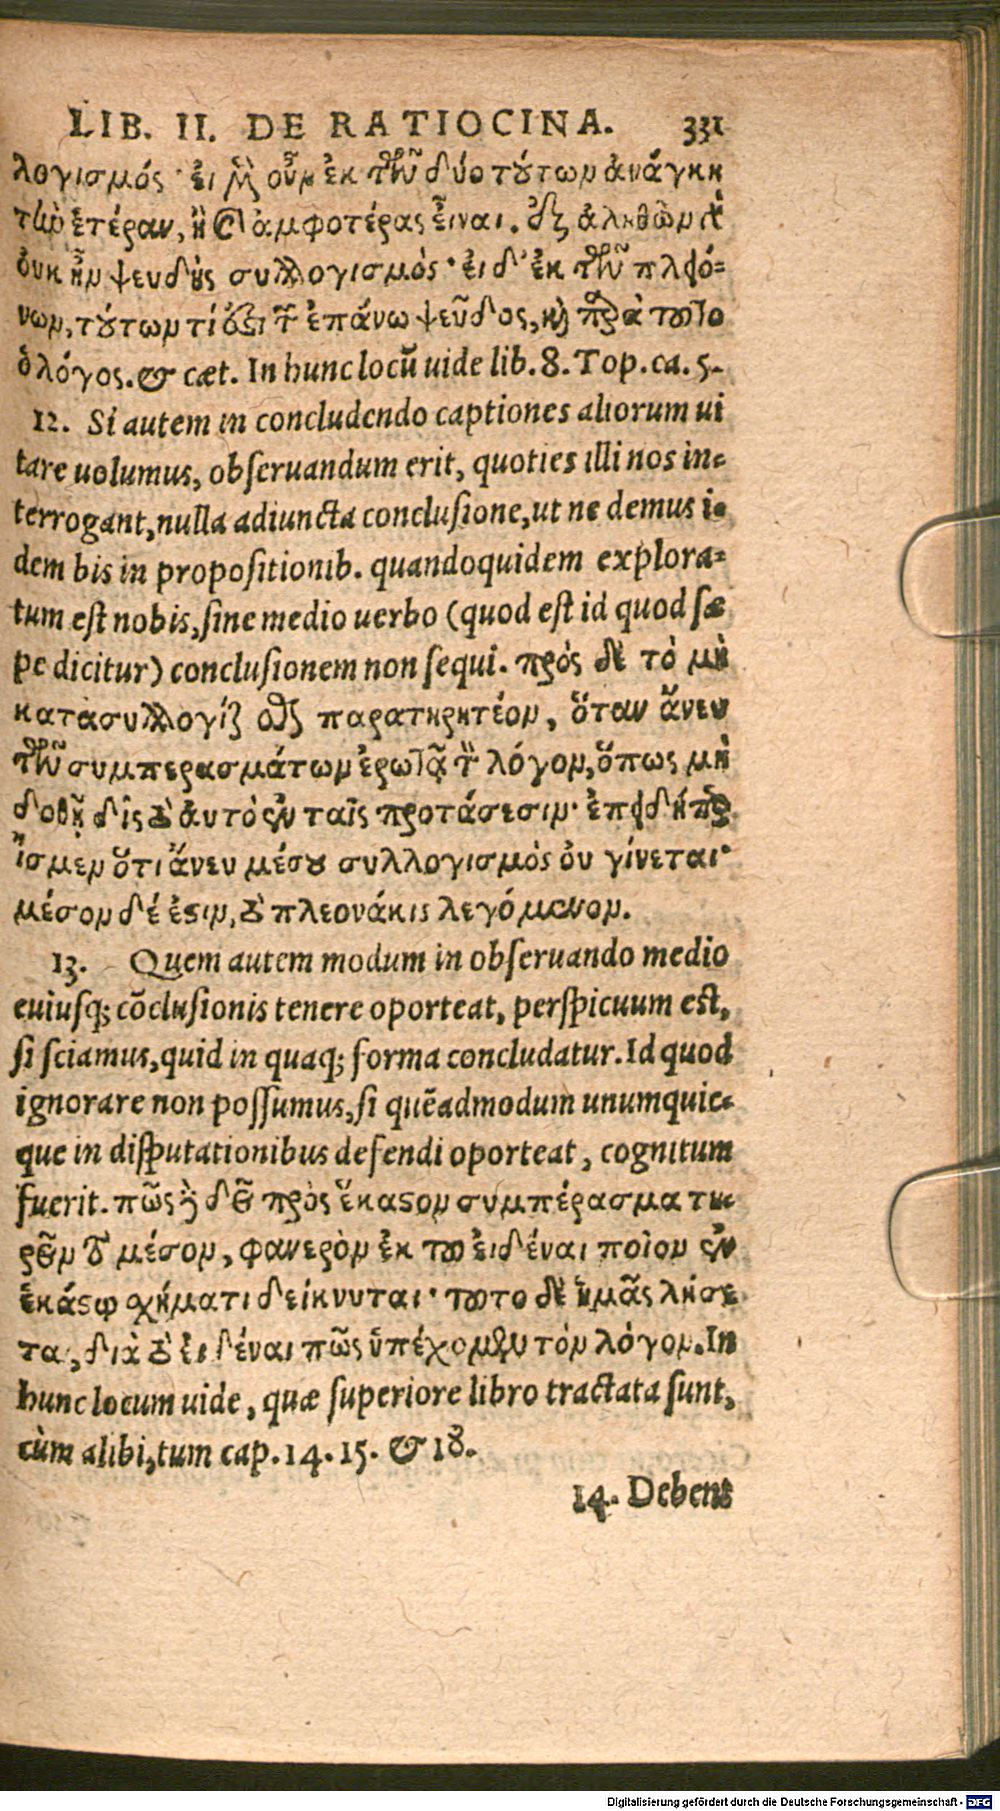 LIB. II. DE RATIOCINA. 331
λογισμός· εἰ μὲν οὖν ἐκ τῶν δύο τούτων ἀνάγκη
τὼ ἑτέραν, ἢ καὶ ἀμφοτέρας εἶναι. ἐξ ἀληθῶν μὲν
οὐκ ἦν ψευδὴς συλλογισμὸς· εἰ δ' ἐκ τῶν πλειό=
νων, τούτων τί ἐστι τῶν ἐπάνω ψεῦδος, καὶ παρὰ τοῦτο
ὁ λόγος. & cæt. In hunc locũ uide lib. 8. Top. ca. 5.
12. Si autem in concludendo captiones aliorum ui
tare uolumus, obseruandum erit, quoties illi nos in-
terrogant, nulla adiuncta conclusione, ut ne demus i-
dem bis in propositionib. quandoquidem explora=
tum est nobis, sine medio uerbo (quod est id quod sæ
pe dicitur) conclusionem non sequi. πρός δὲ τὸ μὴ
κατασυλλογίζεσθαι παρατηρητέον, ὅταν ἄνευ
τῶν συμπερασμάτων ἐρωτᾷ τὸν λόγον, ὅπως μὴ
δοθῇ δὶς τὸ ἀυτὸ ἐν ταῖς προτάσεσιν· ἐπειδήπερ
ἴσμεν ὅτι ἄνευ μέσου συλλογισμὸς οὐ γίνεται·
μέσον δέ ἐστιν, τὸ πλεονάκις λεγόμενον.
13. Quem autem modum in obseruando medio
cuiusq; cõclusionis tenere oporteat, perspicuum est,
si sciamus, quid in quaq; forma concludatur. Id quod
ignorare non possumus, si quẽadmodum unumquic-
que in disputationibus defendi oporteat, cognitum
fuerit. πῶς δὲ δεῖ πρὸς ἕκαστον συμπέρασμα τη-
ρεῖν τὸ μέσον, φανερὸν ἐκ τοῦ εἰδέναι ποῖον ἐν
ἑκάστῳ σχήματι δείκνυται· τοῦτο δὲ ἡμᾶς λήσε
ται, διὰ τὸ εἰδέναι πῶς ὑπέχομεν τὸν λόγον. In
hunc locum uide, quæ superiore libro tractata sunt,
cùm alibi, tum cap. 14. 15. & 18.
14. Debent
Digitalisierung gefördert durch die Deutsche Forschungsgemeinschaft - DFG